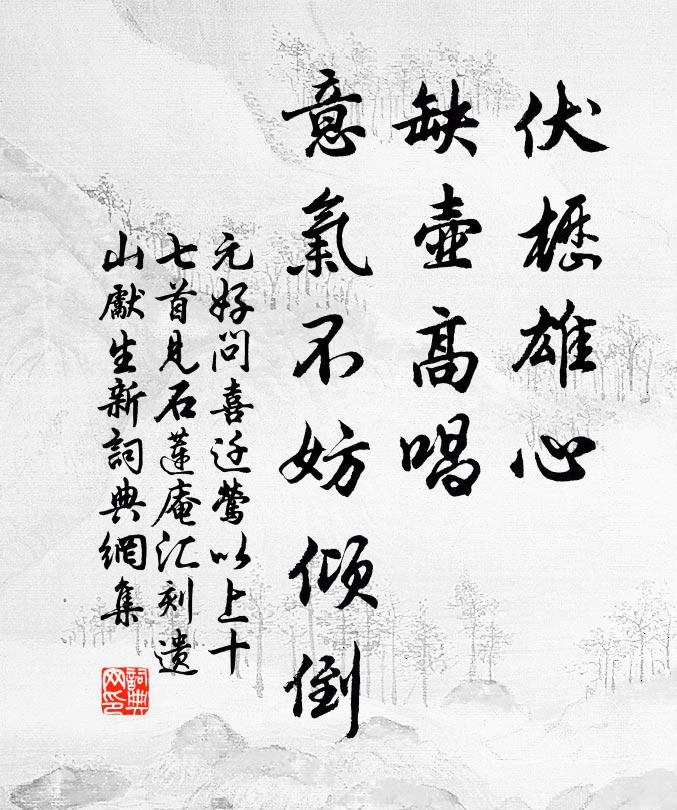 伏櫪雄心
缺壺高唱
意氣不妨傾倒
元好問喜迁鶯以上十
七首見石蓮庵汇刻遺
山獻生新詞典網集
詞典
网印